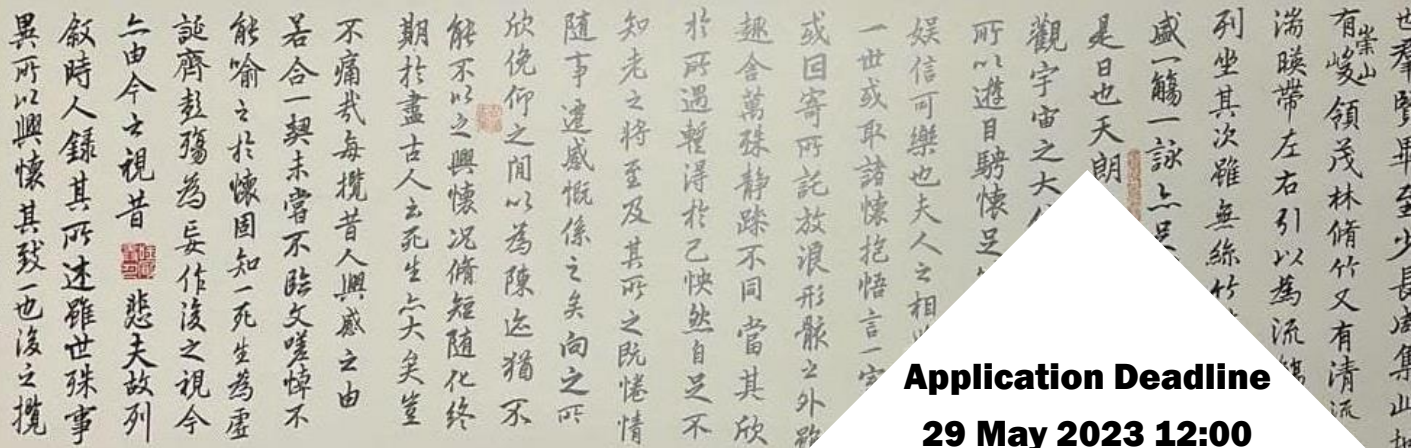 也羣賢畢至少長咸集此
有崇山峻領茂林脩竹又有清流
湍暎帶左右引以為流觴
列坐其次雖無絲竹
盛一觴一詠亦足
是日也天朗
觀宇宙之大
所以遊目騁懷足
娛信可樂也夫人之相
一世或取諸懷抱悟言一室
或因寄所託放浪形骸之外雖
趣舍萬殊靜躁不同當其欣
於所遇暫得於己怏然自足不
知老之將至及其所之既惓情
隨事遷感慨係之矣向之所
欣俛仰之間以為陳迹猶不
能不以之興懷況脩短隨化終
期於盡古人云死生亦大矣豈
不痛哉每攬昔人興感之由
若合一契未嘗不臨文嗟悼不
能喻之於懷固知一死生為虛
誕齊彭殤為妄作後之視今
亦由今之視昔悲夫故列
敘時人錄其所述雖世殊事
異所以興懷其致一也後之攬
Application Deadline
29 May 2023 12:00